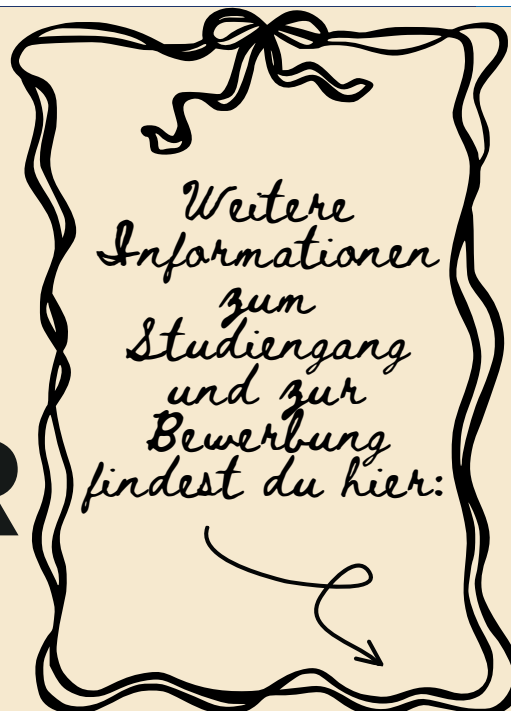 Weitere
Informationen
zum
Studiengang
und zur
Bewerbung
findest du hier:
R